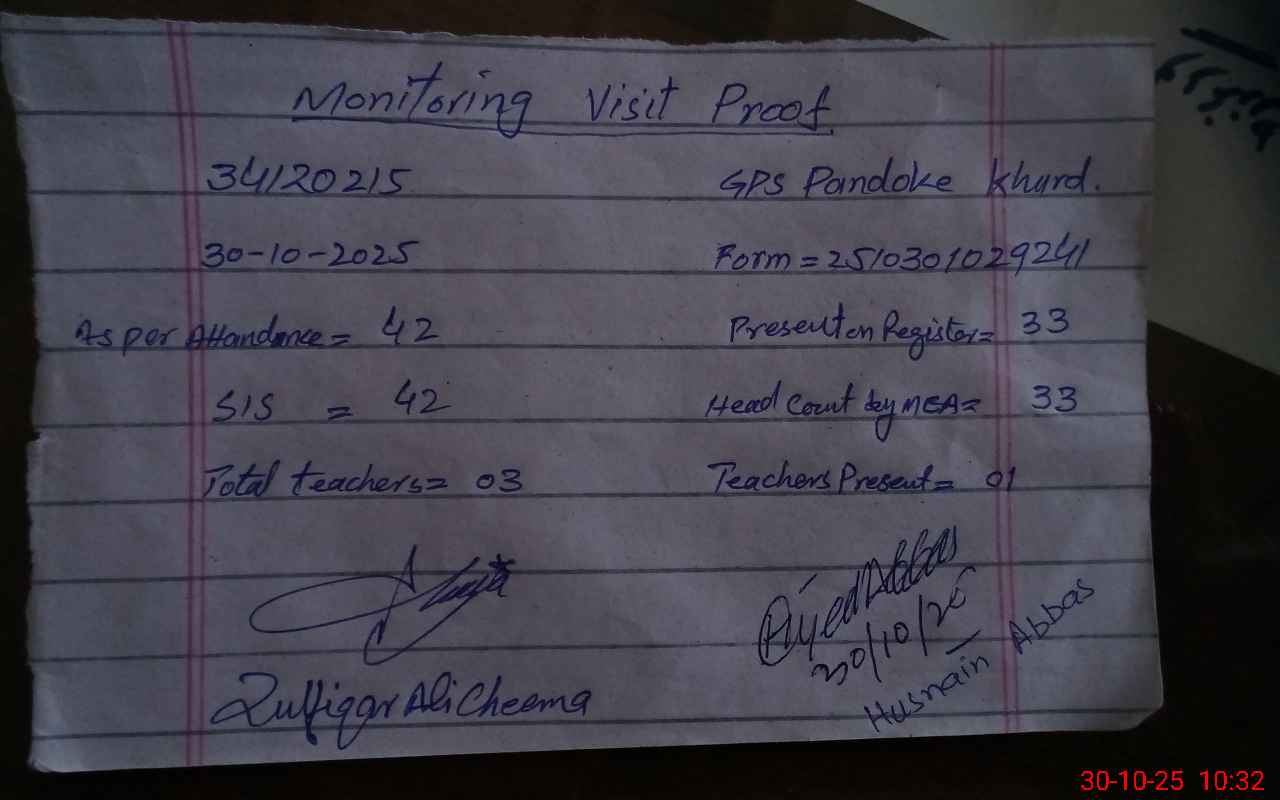 Monitoring Visit Proof
34120215 GPS Pandoke Khurd.
30-10-2025 Form = 2510301029241
As per Attandance = 42 Present on Register = 33
SIS = 42 Head Count by MEA = 33
Total teachers = 03 Teachers Present = 01
Abbas
30/10/25
Zulfiqar Ali Cheema
Husnain Abbas
30-10-25 10:32